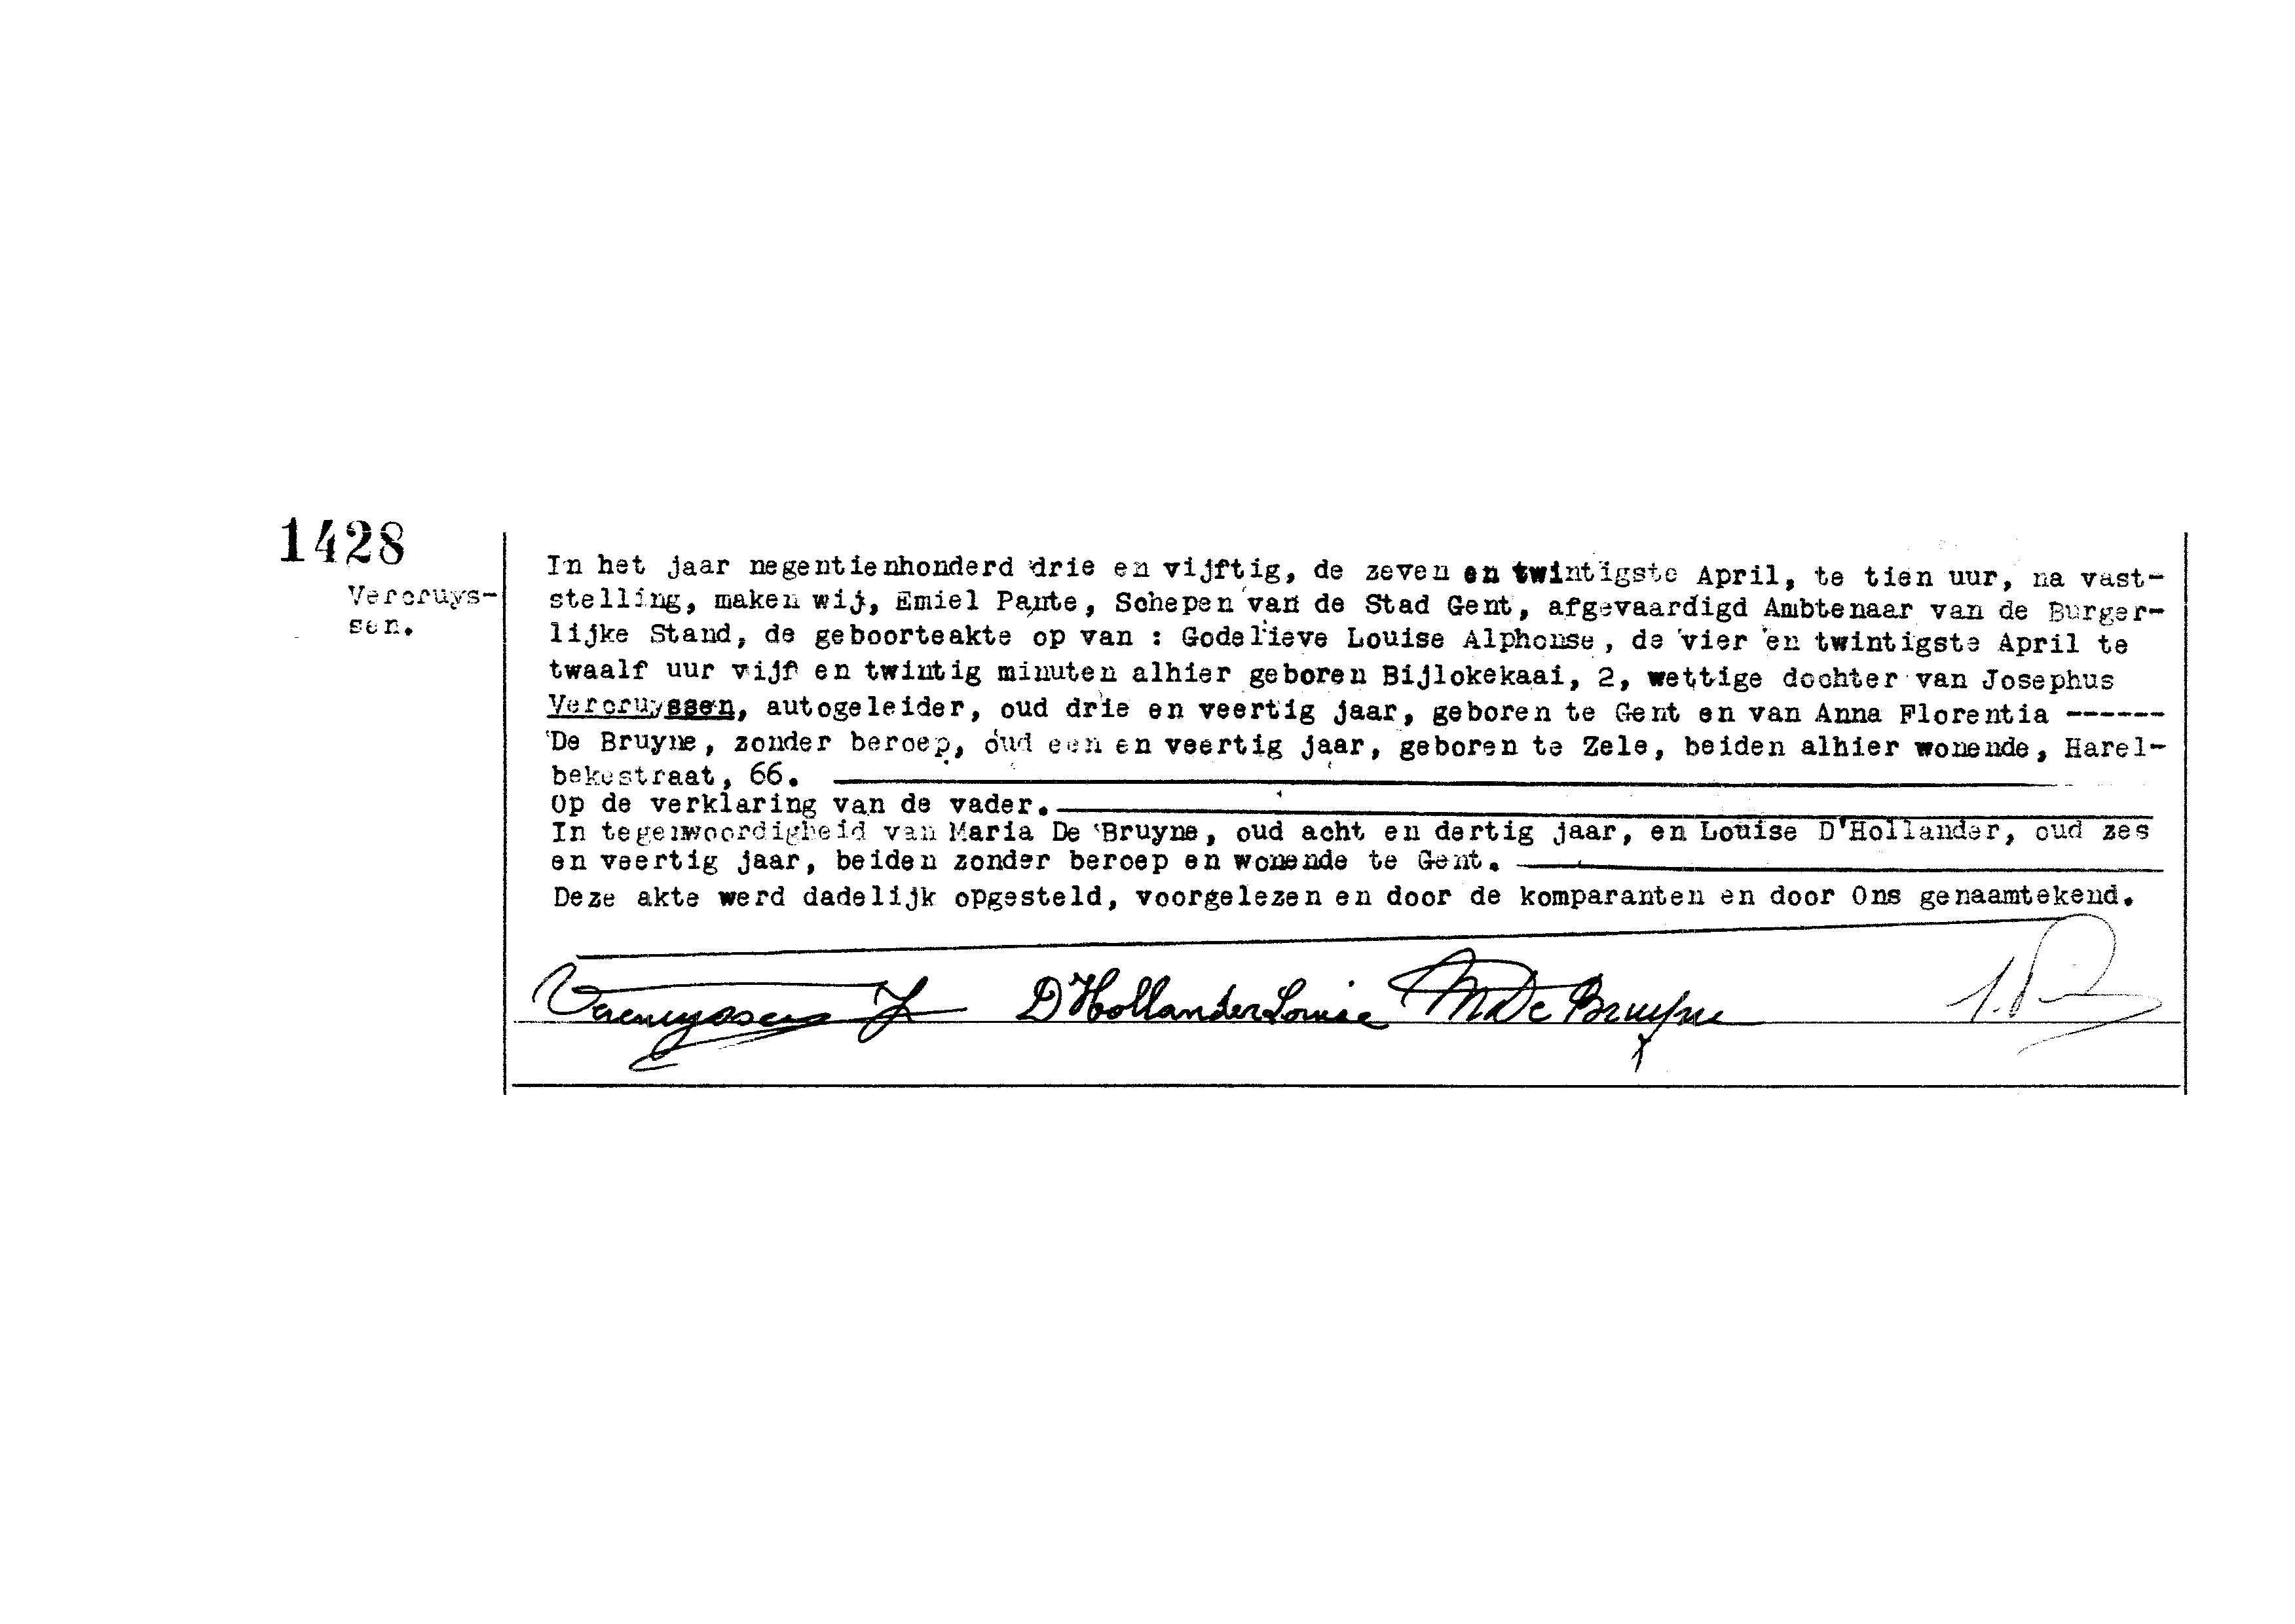 1428
Vercruys-
sen.
In het jaar negentienhonderd drie en vijftig, de zeven en twintigste April, te tien uur, na vast-
stelling, maken wij, Emiel Pante, Schepen van de Stad Gent, afgevaardigd Ambtenaar van de Burger-
lijke Stand, de geboorteakte op van : Godelieve Louise Alphonse, de vier en twintigste April te
twaalf uur vijf en twintig minuten alhier geboren Bijlokekaai, 2, wettige dochter van Josephus
Vercruyssen, autogeleider, oud drie en veertig jaar, geboren te Gent en van Anna Florentia ------
De Bruyne, zonder beroep, oud een en veertig jaar, geboren te Zele, beiden alhier wonende, Harel-
bekestraat, 66.
Op de verklaring van de vader.
In tegenwoordigheid van Maria De Bruyne, oud acht en dertig jaar, en Louise D'Hollander, oud zes
en veertig jaar, beiden zonder beroep en wonende te Gent.
Deze akte werd dadelijk opgesteld, voorgelezen en door de komparanten en door Ons genaamtekend.
Vercruyssen J D'Hollander Louise M De Bruyne